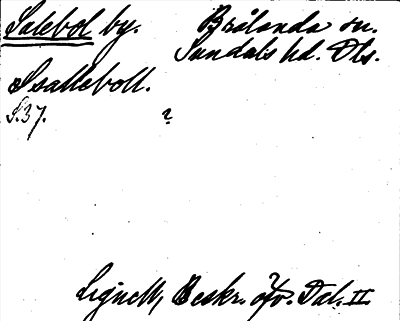 Salebol by. Brålanda sn.
Sundals hd. Dls.
Ssalleboll.
S. 37. ?
Lignell, Beskr. öfv. Dal. II